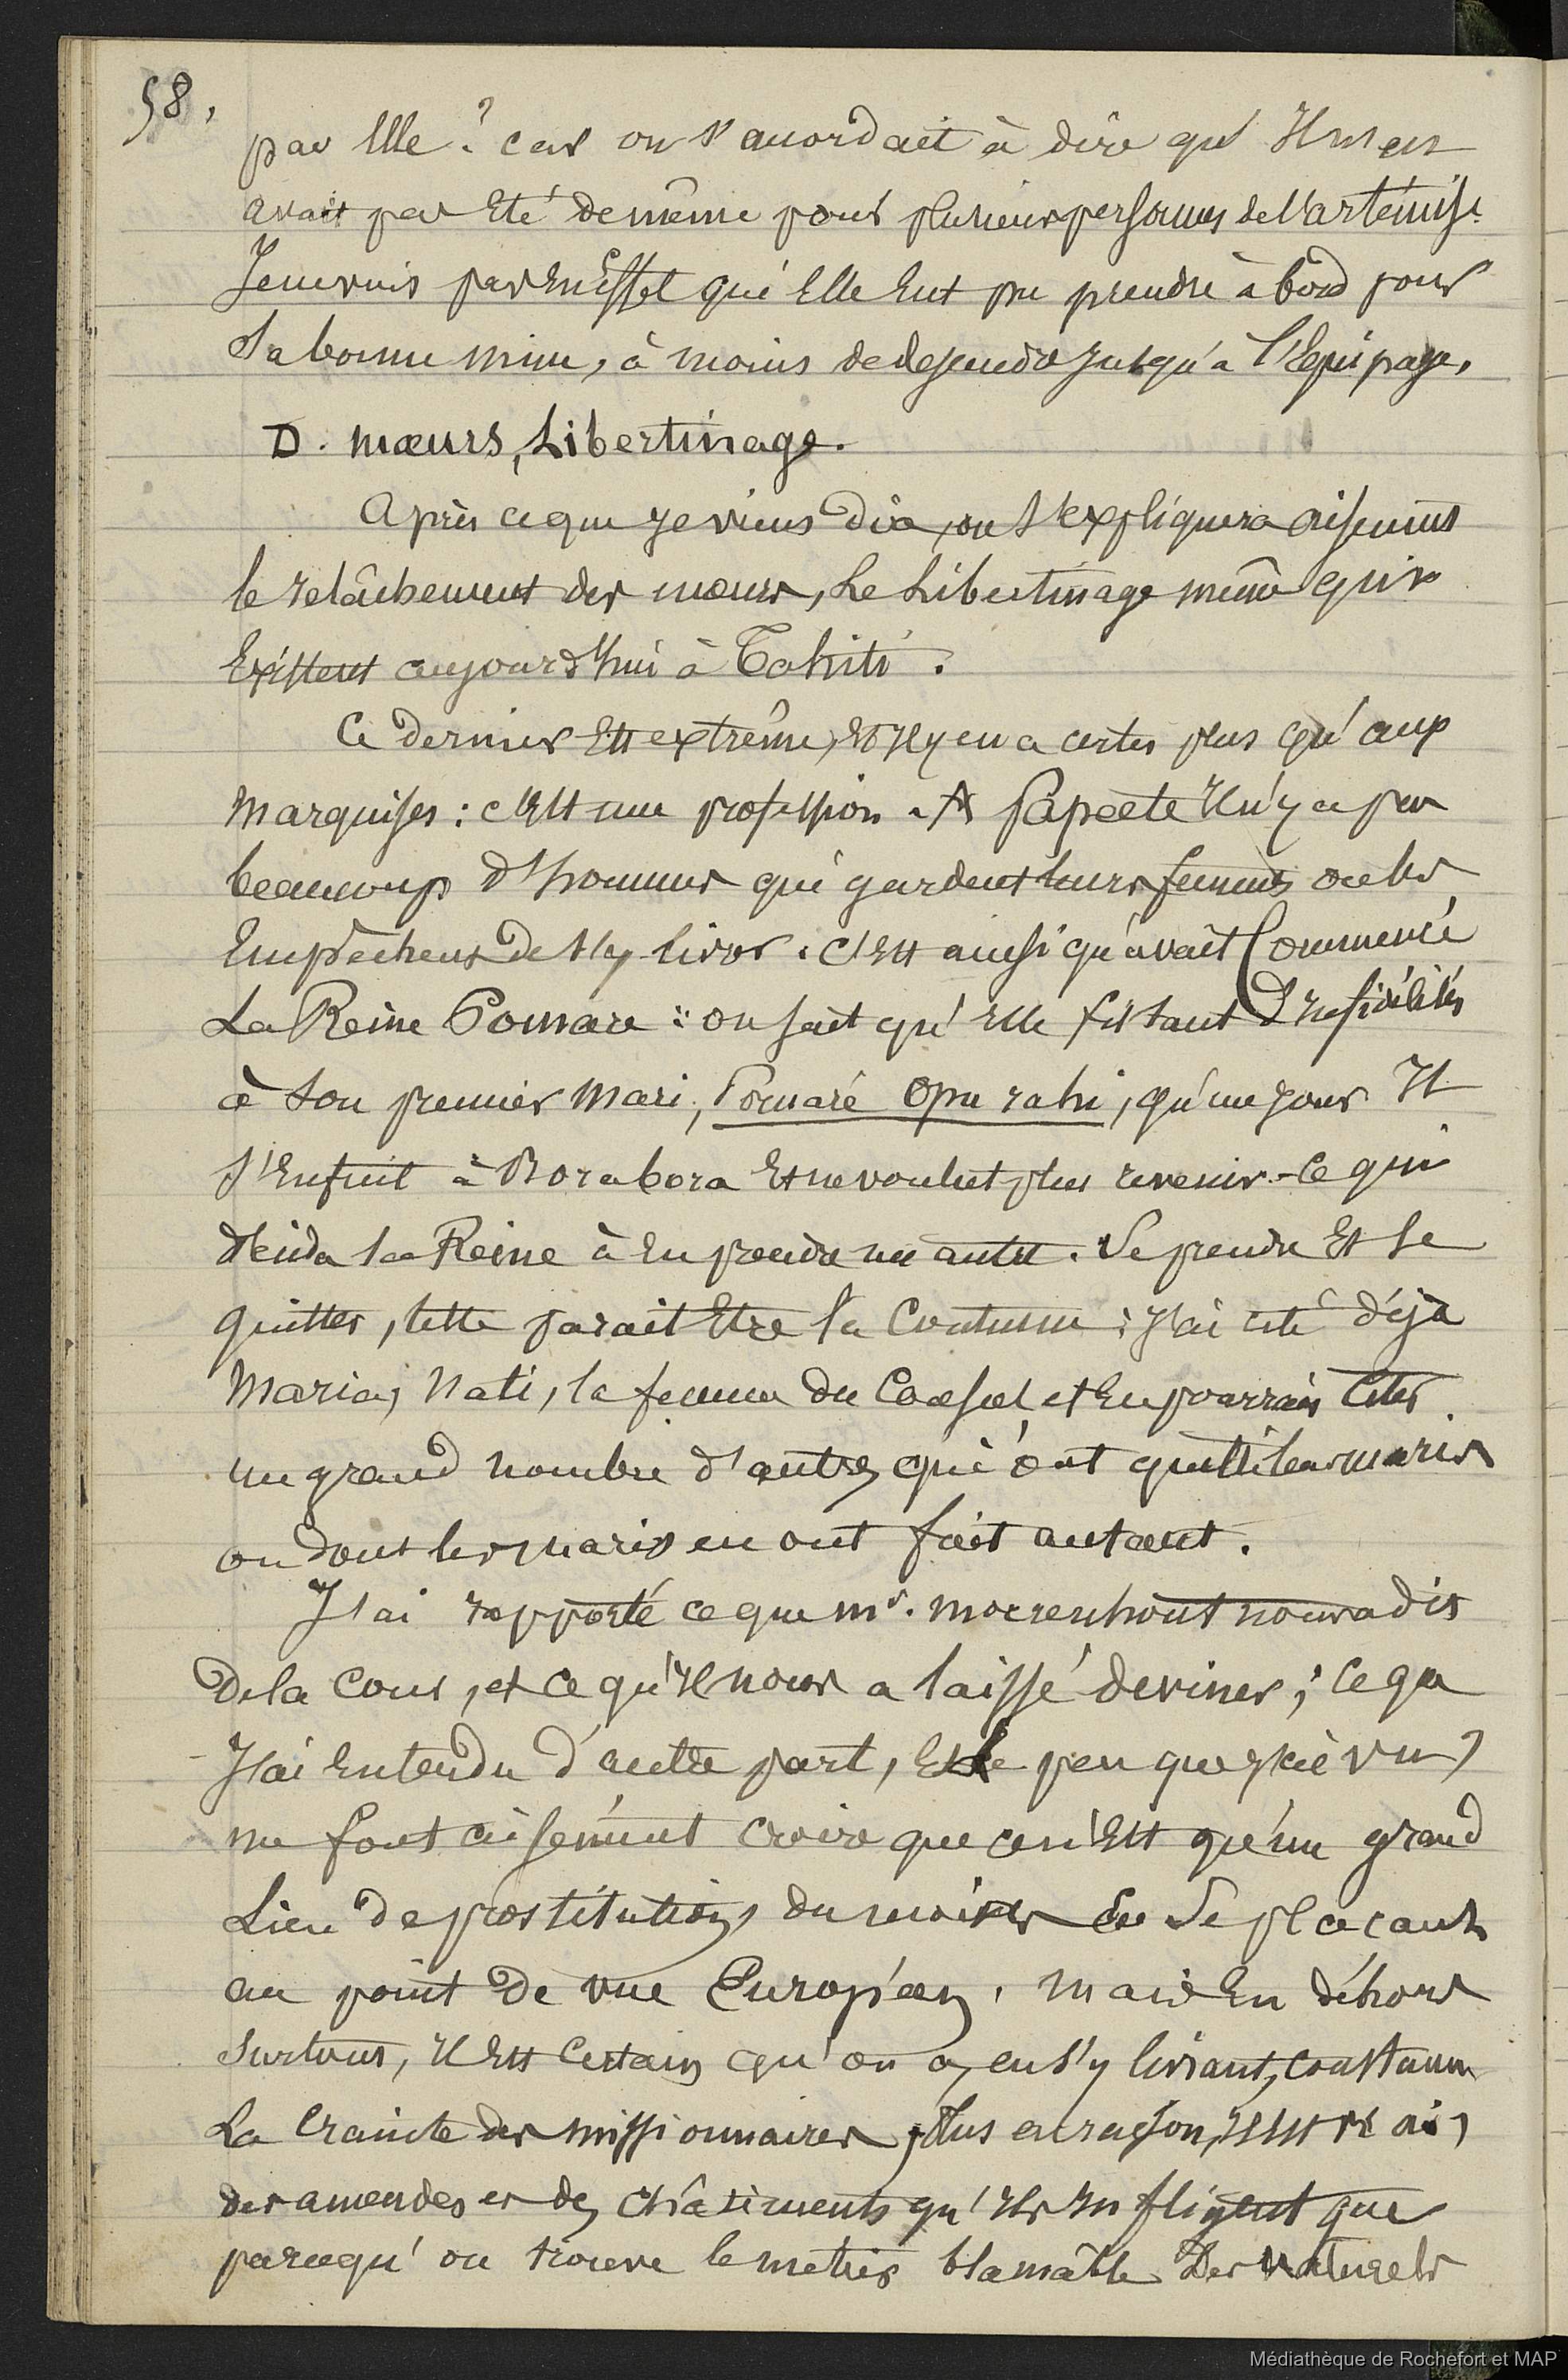 58.
par Elle ? car on s'accordait à dire qu'Il n'en
avait pas Eté de même pour plusieurs personnes de l'artémise.
Je ne vois pas En Effet qui Elle Eut pu prendre à bord pour
sa bonne mine, à moins de descendre jusqu'à l'Equipage.
D. mœurs, Libertinage.
Après ce que je viens dire, on s'expliquera aisément
le relâchement des mœurs, Le Libertinage même qui
Existent aujourd'hui à Tahiti.
Ce dernier Est extrême, Et Il y en a certes plus qu'aux
Marquises : c'Est une profession. A Papeete Il n'y a pas
beaucoup d'hommes qui gardent leurs femmes ou les
Empêchent de s'y livrer. C'Est ainsi qu'avait Commencé
La Reine Pomare : on sait qu'Elle fit tant d'Infidélités
à son premier Mari, Pomaré Opu rahi, qu'un jour Il
s'Enfuit à Borabora Et ne voulut plus revenir - Ce qui
décida la Reine à En prendre un autre. Se prendre Et se
quitter, telle parait Etre la Coutume : J'ai cité déja
Maria, Nati, la femme du Consul et En pourrais Citer
un grand nombre d'autres qui ont quitté leurs maris
ou dont les maris en ont fait autant.
J'ai rapporté ce que Mr. Moerenhout nous a dit
De la Cour, et Ce qu'Il nous a laissé deviner ; Ce que
J'ai Entendu d'autre part, Et le peu que j'ai vu,
me font aisément Croire que ce n'Est qu'un grand
Lieu de prostitution, du moins En Se plaçant
au point De vue Européen. Mais En déhors
Surtout, Il Est Certain qu'on a, en s'y livrant,
La Crainte des missionnaires, plus en raison, Il Est vrai,
des amendes et des châtiments qu'Ils Infligent que
parcequ'on trouve le métier blamable. Des Naturels
Médiathèque de Rochefort et MAP